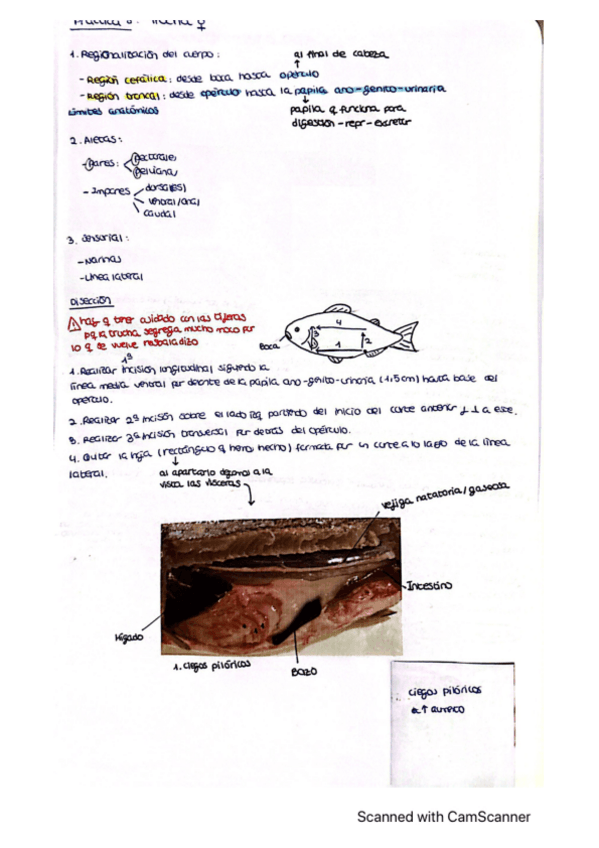 Práctica 3: Trucha ♀
1. Regionalización del cuerpo:
al final de cabeza
- Región cefálica: desde boca hasta opérculo
- Región troncal: desde opérculo hasta la papila ano-genito-urinaria
Límites anatómicos
papila q funciona para
digestión-repr-excretar
2. Aletas:
- Pares:
Pectorales
Pelvianas
- Impares
dorsal(es)
ventral/anal
caudal
3. Sensorial:
- Narinas
- Línea lateral
Disección
hay q tener cuidado con las tijeras
pq la trucha segrega mucho moco por
lo q se vuelve resbaladizo
Boca
1
2
3
4
1ª
1. Realizar incisión longitudinal siguiendo la
línea media ventral por delante de la papila ano-genito-urinaria (1,5cm) hasta base del
opérculo.
2. Realizar 2ª incisión sobre el lado izq partiendo del inicio del corte anterior y ⊥ a este.
3. Realizar 3ª incisión transversal por detrás del opérculo.
4. Quitar la hoja (rectángulo q hemos hecho) formada por un corte a lo largo de la línea
lateral.
al apartarlo dejamos a la
vista las vísceras
vejiga natatoria/gaseosa
Intestino
Hígado
1. Ciegos pilóricos
Bazo
ciegos pilóricos
Scanned with CamScanner